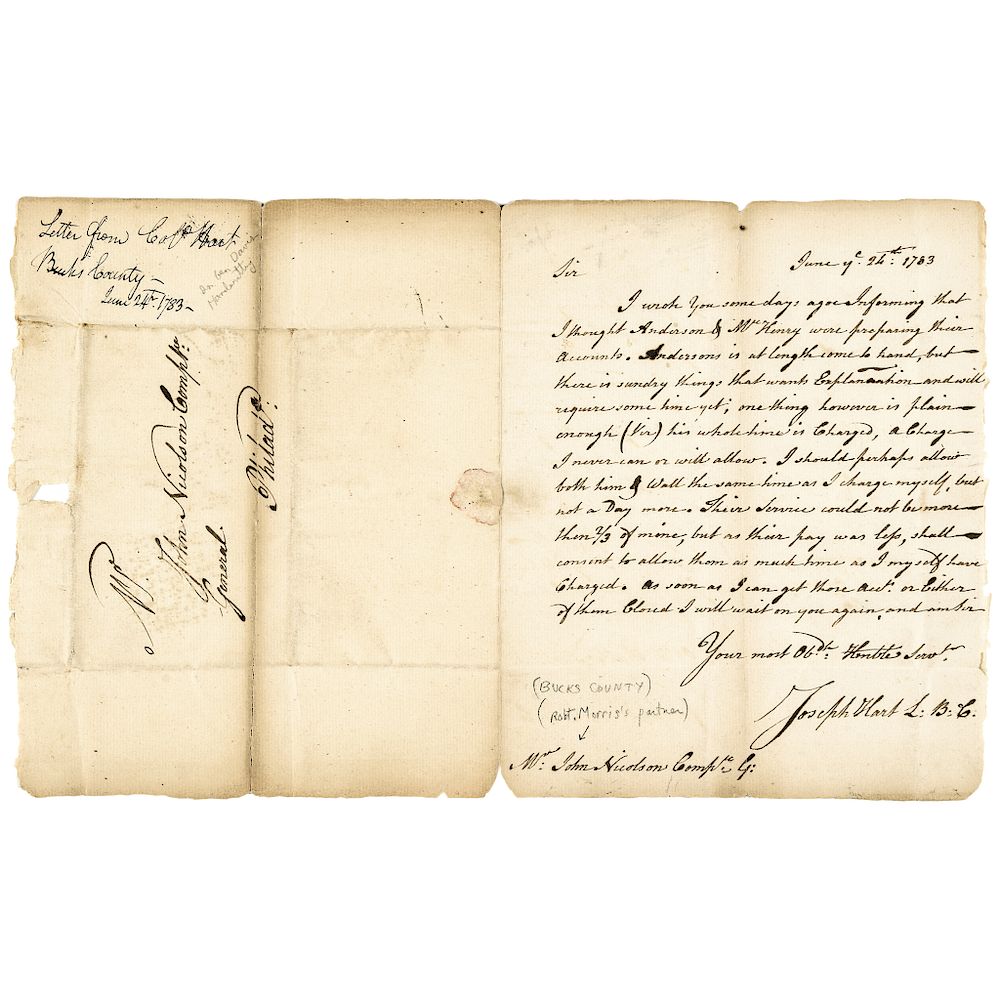 Letter from Col.º Hart
Bucks County –
June 24th 1783 –
in Gen Davis
Handwriting
Mr.
John Nicolson Comptr:
General.
Philad.ª
June yᵉ. 24th: 1783
Sir
I wrote You some days agoe Informing that
I thought Anderson & McHenry were preparing their
accounts. Andersons is at length come to hand, but
there is sundry things that wants Explanation and will
require some time yet; one thing however is plain
enough (Viz) his whole time is Charged, a Charge
I never can or will allow. I should perhaps allow
both him & Wall the same time as I charge myself, but
not a Day more. Their Service could not be more
then ⅔ of mine, but as their pay was less, shall
consent to allow them as much time as I myself have
Charged. as soon as I can get those Accts. or Either
of them Closed I will wait on you again, and am Sir
Your most Obdt. Hmble Servt.
Joseph Hart L: B: C.
(BUCKS COUNTY)
(Robt. Morris's partner)
↓
Mr. John Nicolson Comptr G: